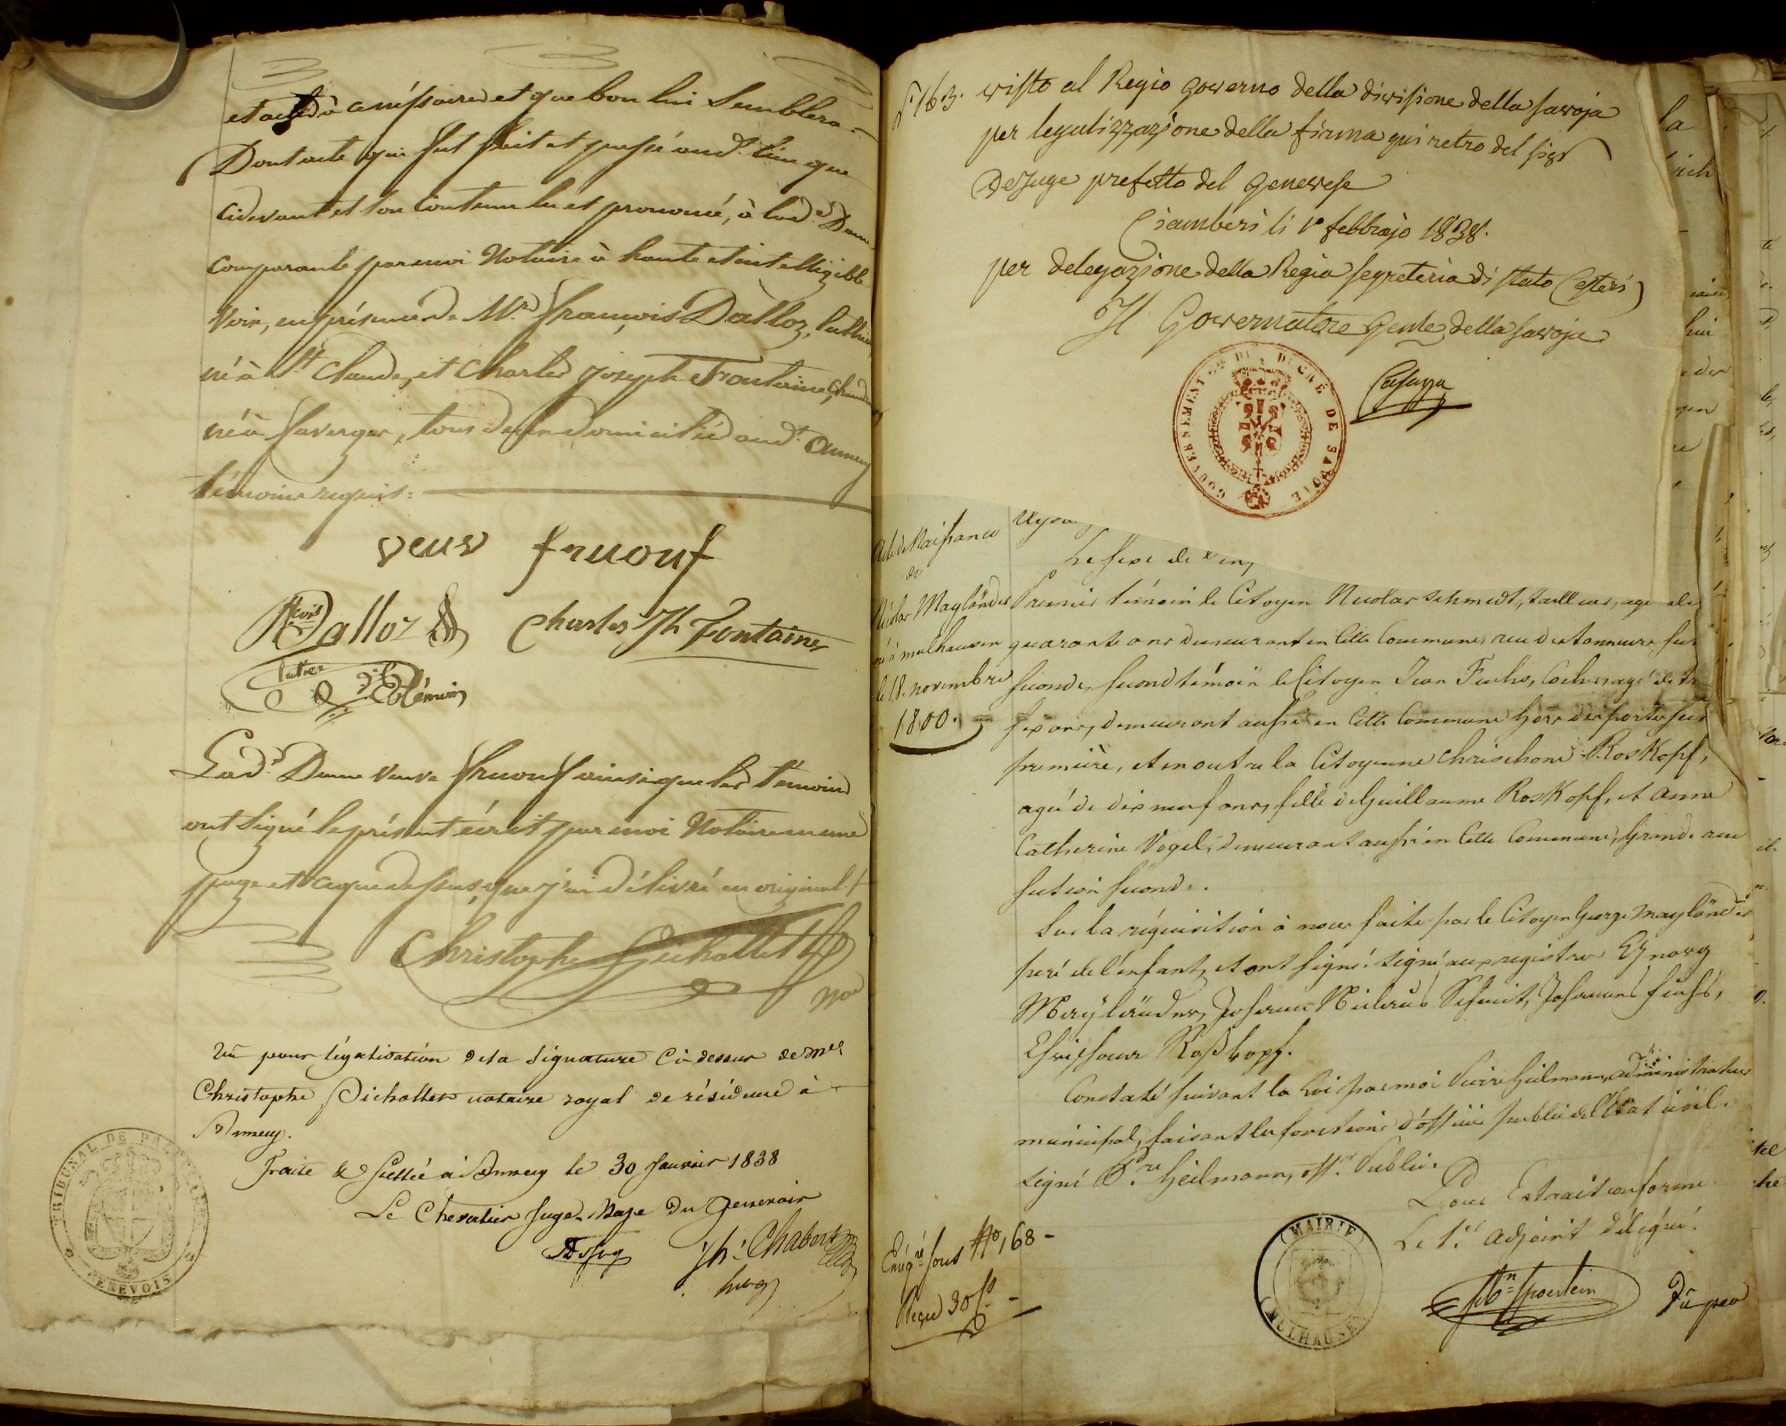 et que bon lui Semblera
Dont acte qui fut fait et passé aud.t lieu que
cidevant et son Contenu lu et prononcé, à lad.e Dame
comparante par moi Notaire à haute et intelligible
Voix, en présence de M.rs François Dalloz, luthier
né à S.t Claude, et Charles Joseph Fontaine
né à Faverges, tous deux Domiciliés aud.t Annecy
témoins requis.
veuv fruouf
F.cois Dalloz Charles Jh Fontaine
Témoin
Lad.e Dame veuve fruouf ainsi que les témoins
ont Signé le présent écrit par moi Notaire même
page et que dessus, que j'ai délivré en original
Christophe
Not
Vu pour légalisation de la Signature Ci dessus de M.e
Christophe notaire royal de résidence à
Annecy.
Annecy le 30 Janvier 1838
Le Chevalier Juge Maje du Genevois
Jh. Chabert
TRIBUNAL DE
GENEVOIS
N 163. visto al Regio Governo della divisione della Savoja
per legalizzazione della firma qui retro del Sigr
DeJuge prefetto del Genevese
Ciamberì li 1º febbrajo 1838.
per delegazione della Regia Segreteria di Stato (Esteri)
Il Governatore Genle della Savoja
GOUVERNEMENT DU DUCHÉ DE SAVOIE
Acte de Naissance
de
Mayländer
né à mulhausen
le 18. novembre
1800.
Le sexe de
Premier témoin le Citoyen Nicolas Schmidt, tailleur, agé de
quarante ans demeurant en Cette Commune, rue des tonneurs, section
seconde, second témoin le Citoyen Jean Fuchs,
six ans, demeurant aussi en Cette Commune hors des portes section
première, et en outre la Citoyenne Chrischona Roskopf,
agée de dix neuf ans, fille de Guillaume Roskopf, et Anne
Catherine Vogel, demeurant aussi en Cette Commune, Grande rue
section seconde.
Sur la réquisition à nous faite par le Citoyen George Mayländer
père de l'enfant, et ont signé. Signé au registre Georg
Mayländer, Johannes Schmit, Johannes Fuchs,
Roßkopf.
Constaté suivant la Loi par moi Pierre Heilmann, administrateur
municipal, faisant les fonctions d'officier public de l'état civil.
signé P.re Heilmann, off.r Public.
Pour Extrait conforme.
Le 1.er adjoint délégué.
MAIRIE
MULHAUSEN
Enreg.ré sous No 168
Reçu 30